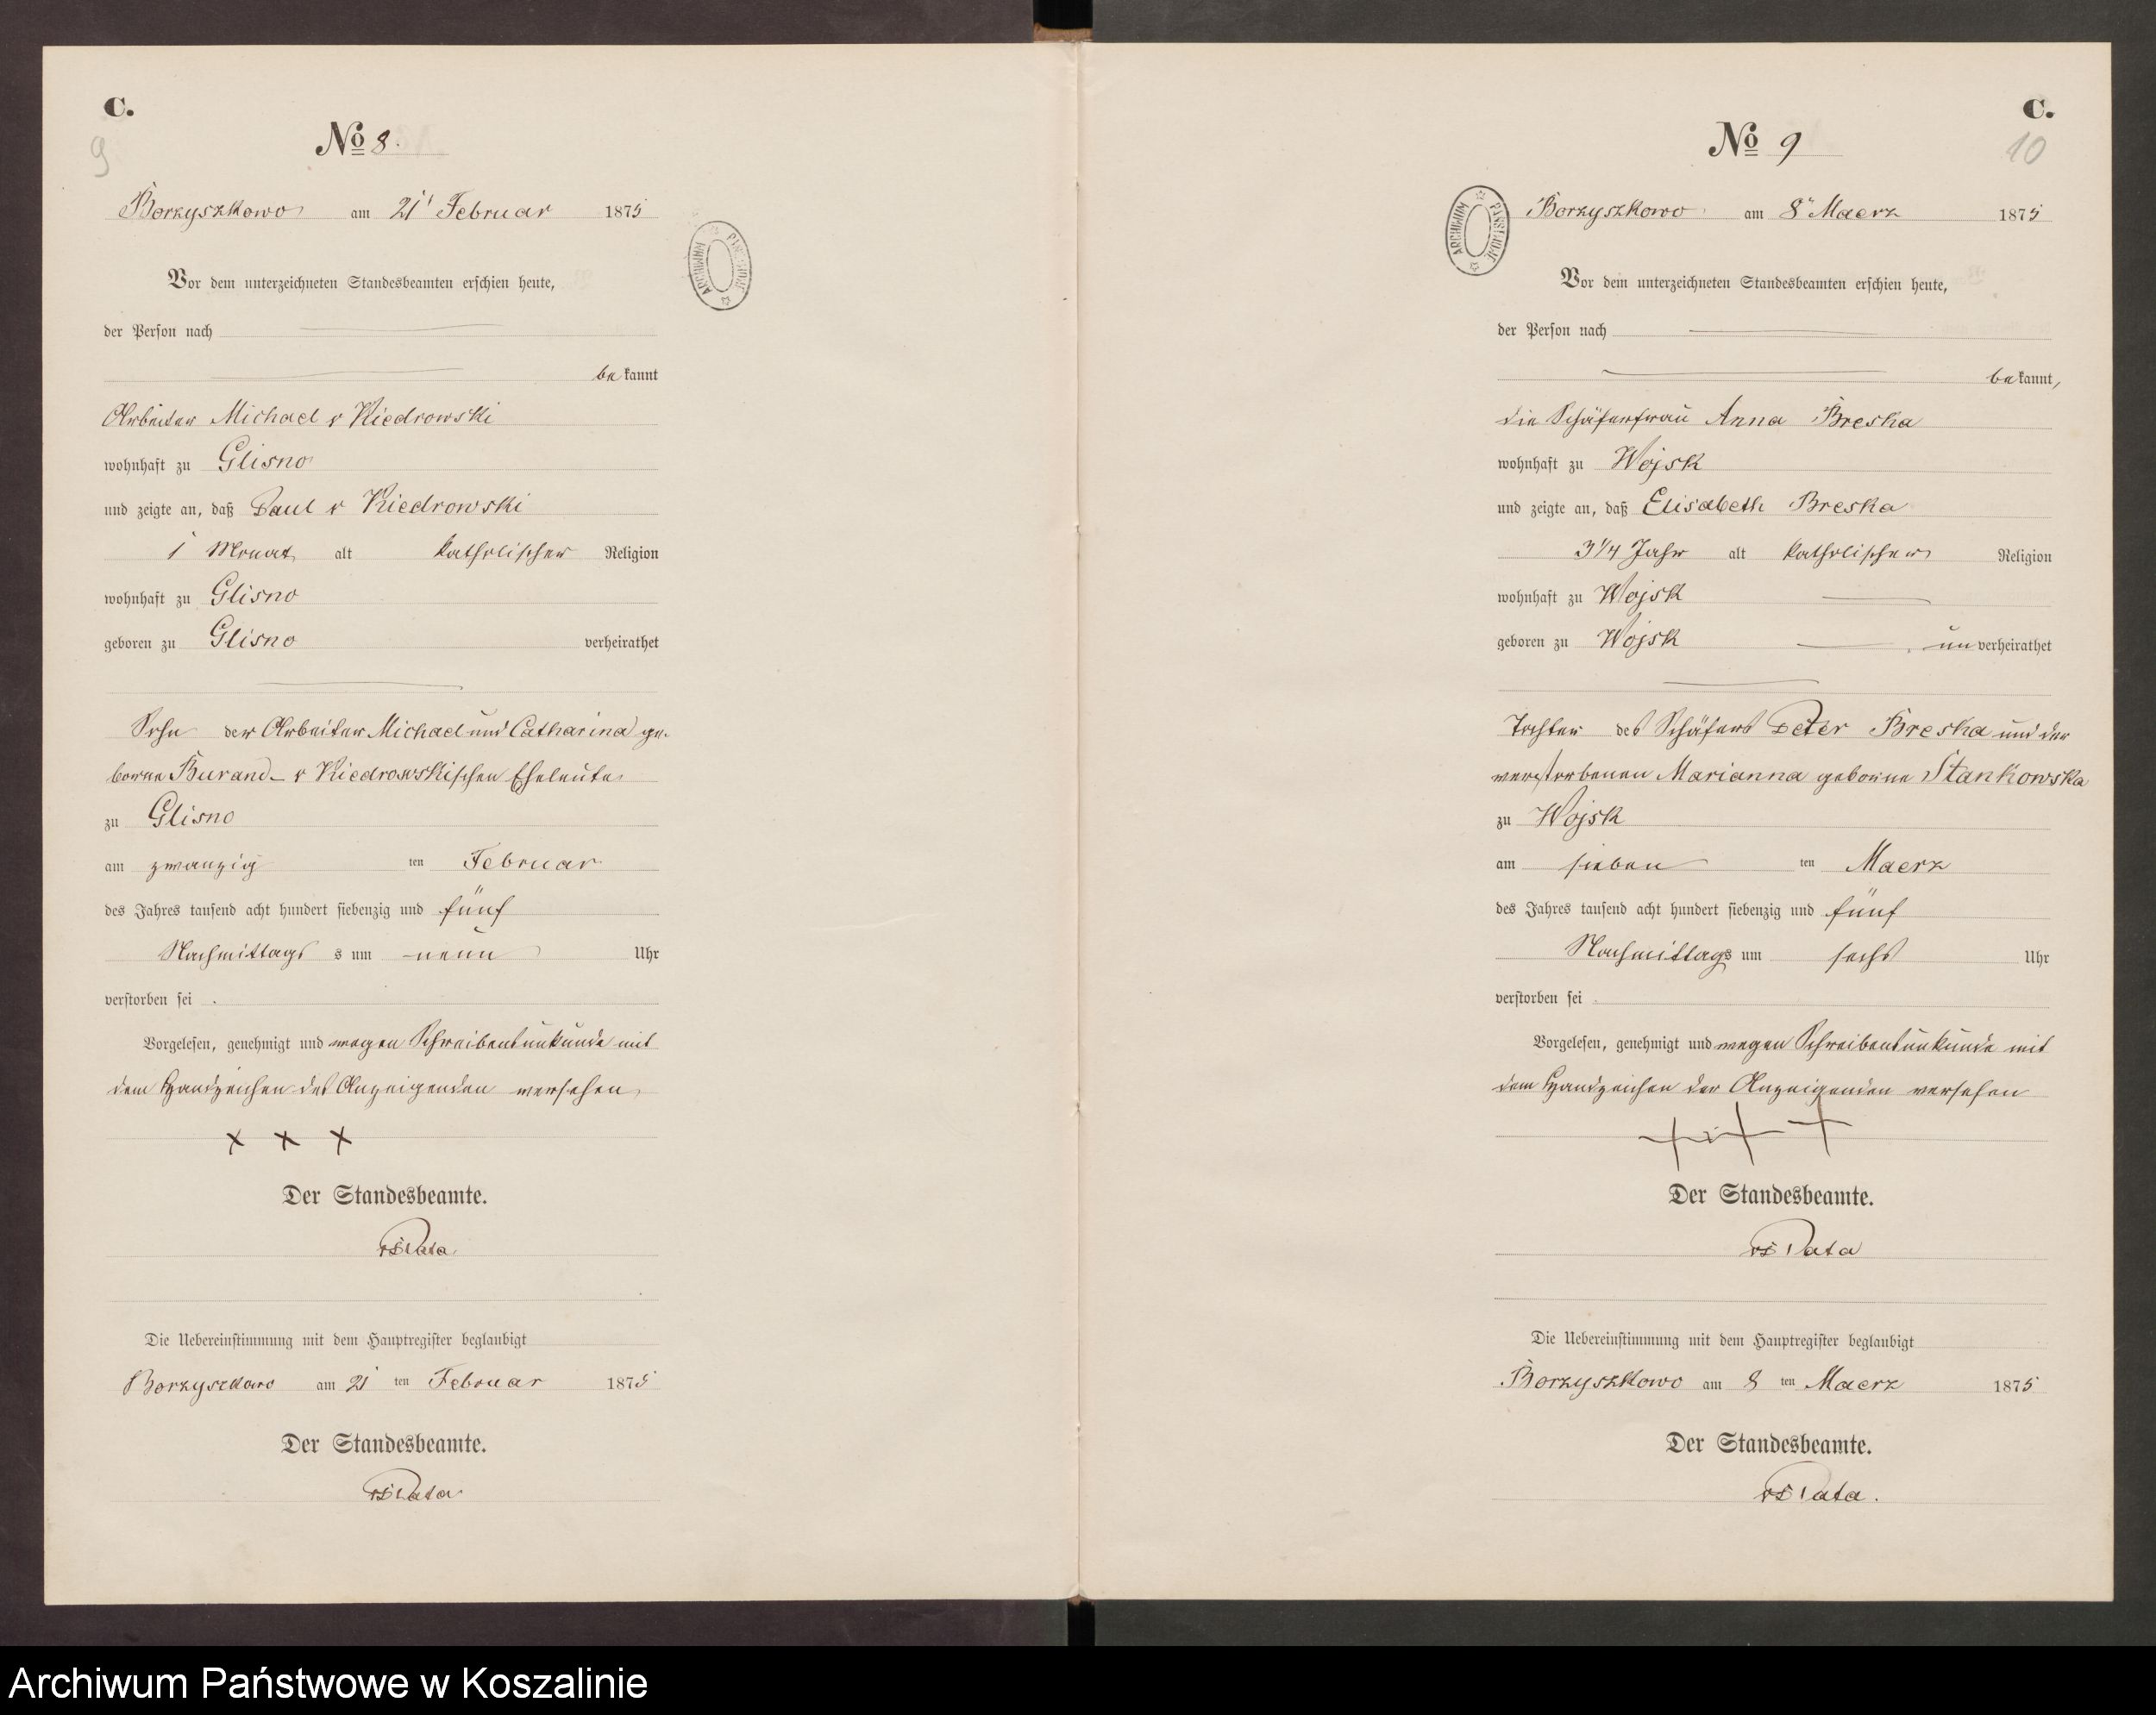 C.
9
No 8.
Borzyszkowo am 21t Februar 1875
Vor dem unterzeichneten Standesbeamten erschien heute,
der Person nach
bekannt
Arbeiter Michael v Kiedrowski
wohnhaft zu Glisno
und zeigte an, daß Paul v Kiedrowski
1 Monat alt katholischer Religion
wohnhaft zu Glisno
geboren zu Glisno verheirathet
Sohn der Arbeiter Michael und Catharina ge-
borne Burand - v Kiedrowskischen Eheleute
zu Glisno
am zwanzig ten Februar
des Jahres tausend acht hundert siebenzig und fünf
Nachmittags s um neun Uhr
verstorben sei .
Vorgelesen, genehmigt und wegen Schreibensunkunde mit
dem Handzeichen des Anzeigenden versehen
x x x
Der Standesbeamte.
Pata
Die Uebereinstimmung mit dem Hauptregister beglaubigt
Borzyszkowo am 21 ten Februar 1875
Der Standesbeamte.
Pata
ARCHIWUM PAŃSTWOWE
C.
10
No 9
Borzyszkowo am 8t Maerz 1875
Vor dem unterzeichneten Standesbeamten erschien heute,
der Person nach
bekannt,
die Schäferfrau Anna Breska
wohnhaft zu Wojsk
und zeigte an, daß Elisabeth Breska
3 1/4 Jahr alt katholischer Religion
wohnhaft zu Wojsk
geboren zu Wojsk unverheirathet
Tochter des Schäfers Peter Breska und der
verstorbenen Marianna geborne Stankowska
zu Wojsk
am sieben ten Maerz
des Jahres tausend acht hundert siebenzig und fünf
Nachmittags um sechs Uhr
verstorben sei .
Vorgelesen, genehmigt und wegen Schreibensunkunde mit
dem Handzeichen der Anzeigenden versehen
+ + +
Der Standesbeamte.
Pata
Die Uebereinstimmung mit dem Hauptregister beglaubigt
Borzyszkowo am 8 ten Maerz 1875
Der Standesbeamte.
Pata.
ARCHIWUM PAŃSTWOWE
Archiwum Państwowe w Koszalinie